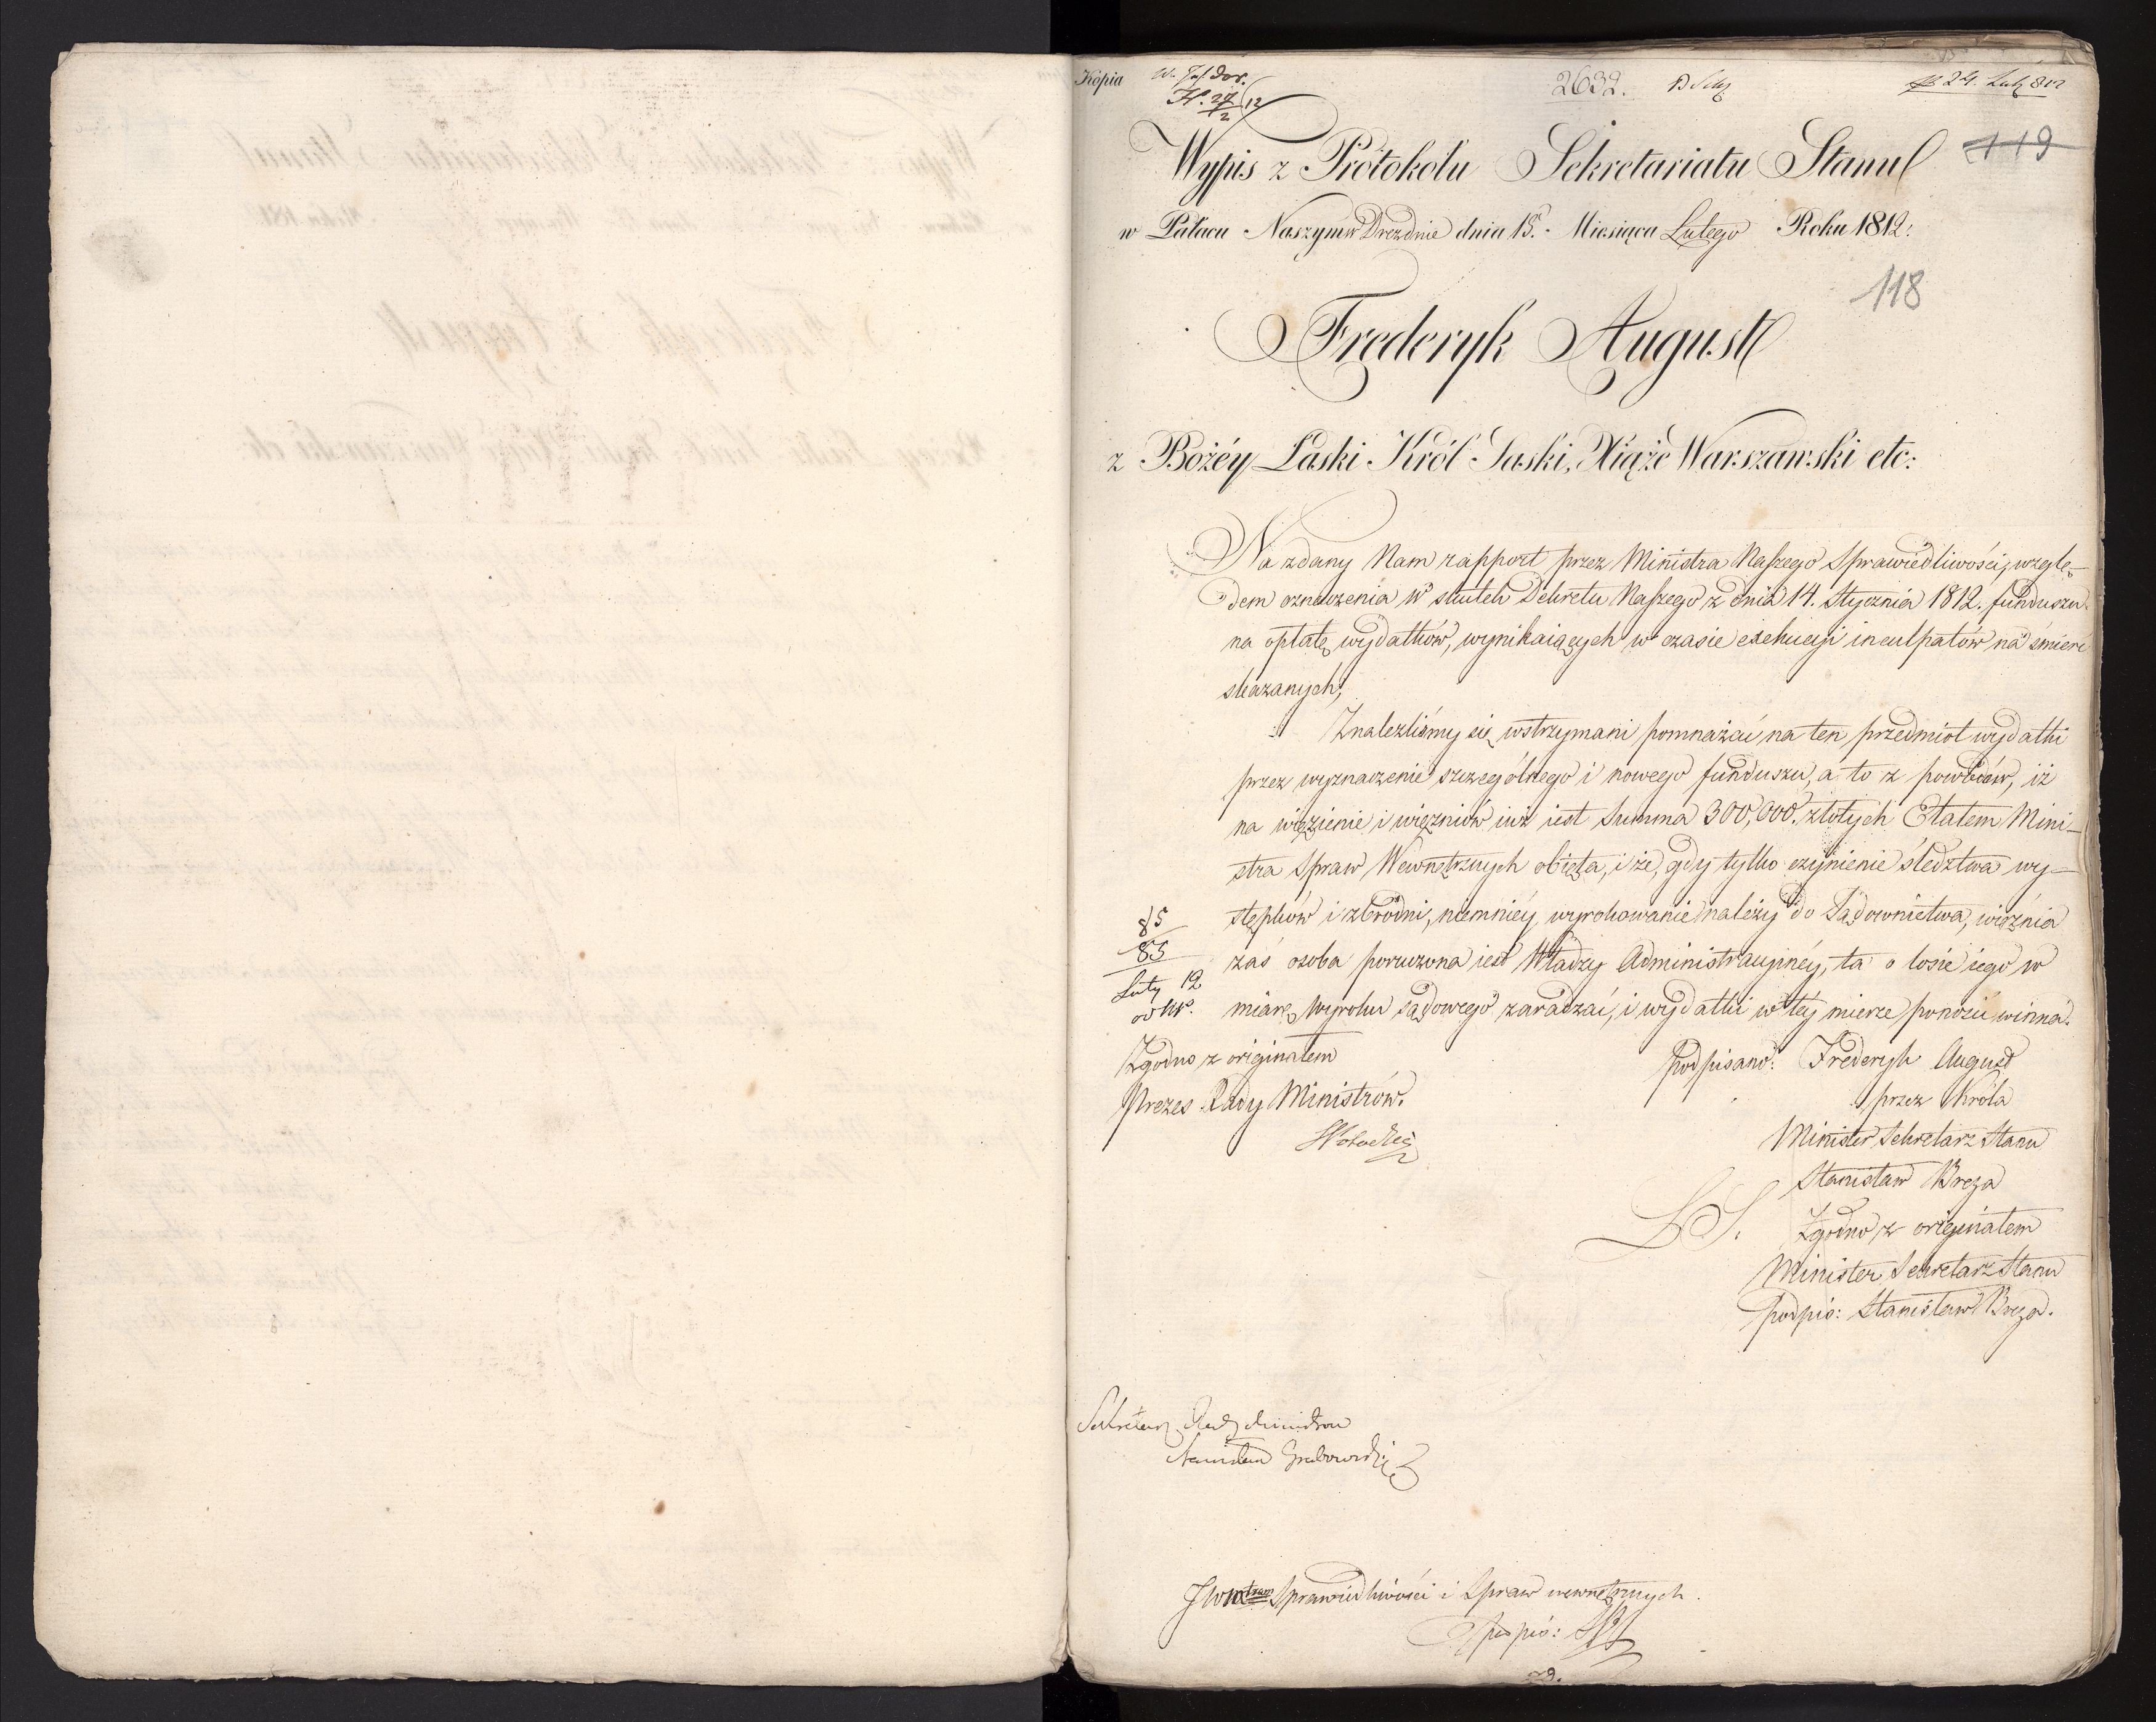 Kopia
2632.
24. Lut. 812
119
Wypis z Protokołu Sekretariatu Stanu
w Pałacu Naszym w Dreznie dnia 15. Miesiąca Lutego Roku 1812.
118
Frederyk August
z Bożéy Łaski Król Saski, Xiąże Warszawski etc:
Na zdany Nam rapport przez Ministra Naszego Sprawiedliwości, wzglę-
dem oznaczenia w skutek Dekretu Naszego z dnia 14. Stycznia 1812. funduszu
na opłatę wydatków, wynikaiących w czasie exekucyi inculpatów na śmierć
skazanych;
Znaleźliśmy się wstrzymani pomnażać na ten przedmiot wydatki
przez wyznaczenie szczególnego i nowego funduszu, a to z powodów, iż
na więzienie i więzniów iuż iest Summa 300,000. złotych Etatem Mini-
stra Spraw Wewnętrznych obięta, i że, gdy tylko czynienie śledztwa wy-
stępków i zbrodni, niemniéy wyrokowanie należy do Sądownictwa, więznia
85
83
Luty 12
zaś osoba poruczona iest Władzy Administracyinéy, ta o losie iego w
miarę Wyroku sądowego zaradzać, i wydatki w téy mierze ponosić winna.
Zgodno z originałem
Prezes Rady Ministrów.
podpisano: Frederyk August
przez Króla
Minister Sekretarz Stanu
Stanisław Breza
L S.
Zgodno z originałem
Minister Sekretarz Stanu
podpis: Stanisław Breza.
Sekretarz Rady Ministrow
Stanisław Grabowski
Sprawiedliwości i Spraw wewnętrznych.
podpis: